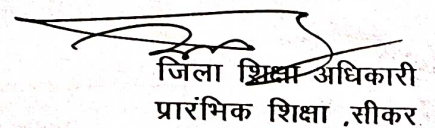 जिला शिक्षा अधिकारी
प्रारंभिक शिक्षा ,सीकर